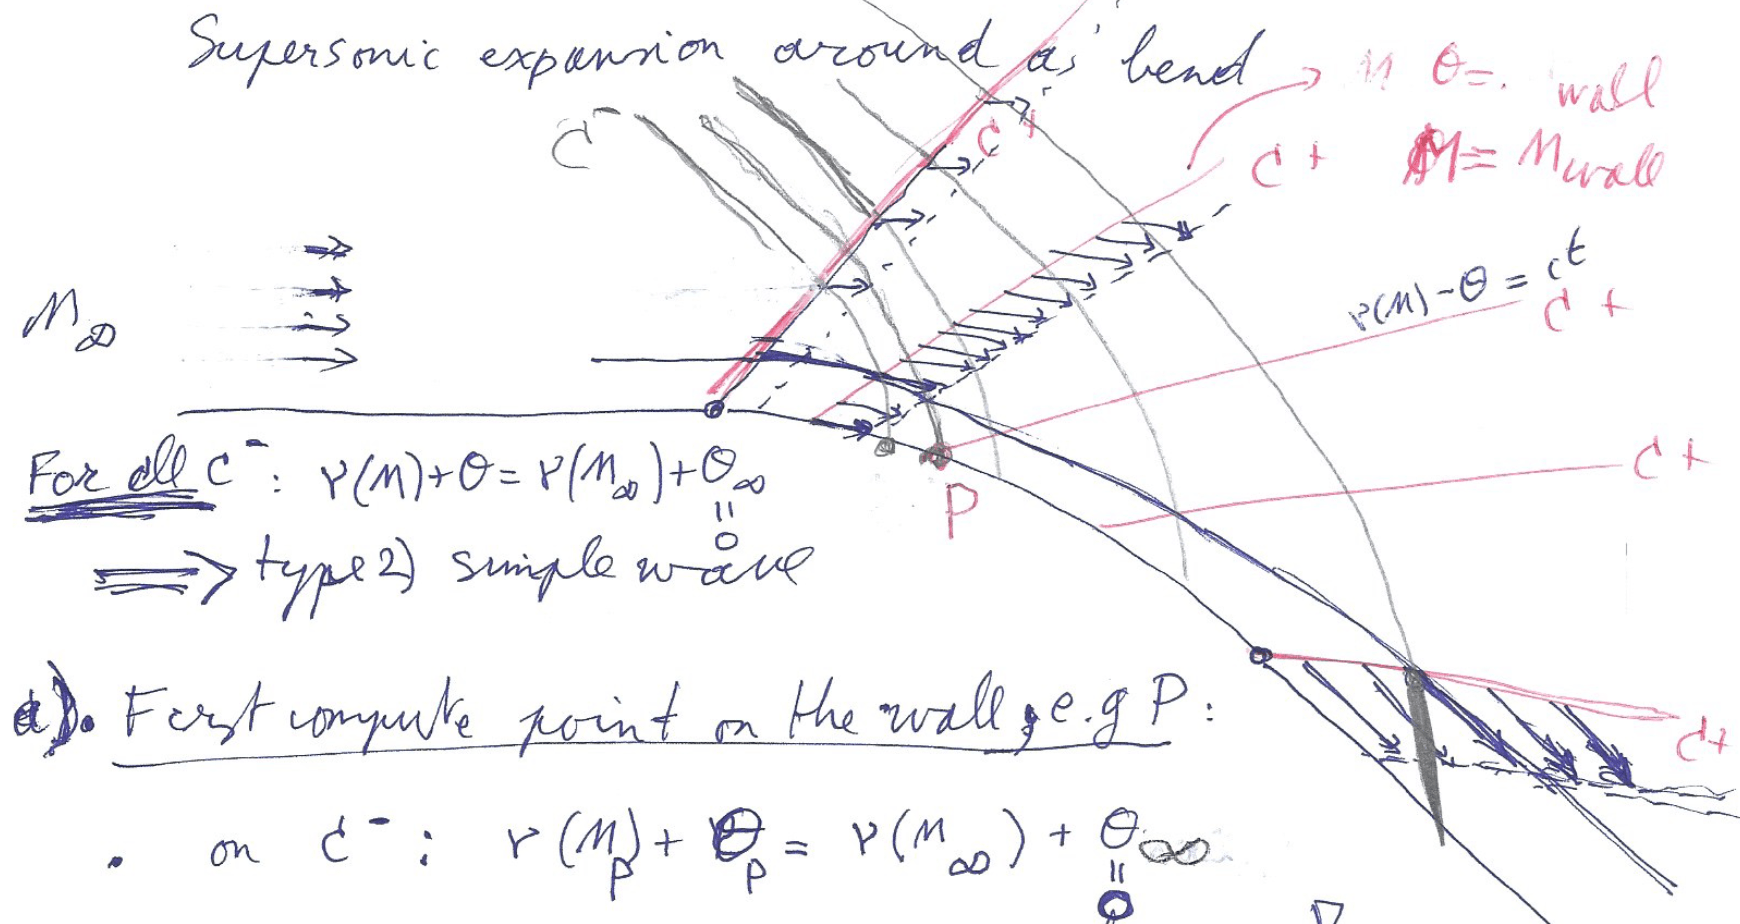 Supersonic expansion around a bend
θ = wall
M = M wall
C⁻
C⁺
C⁺
M∞
ν(M) - θ = ct
C⁺
C⁺
For all C⁻ : ν(M) + θ = ν(M∞) + θ∞
=
0
P
⟹ type 2) simple wave
C⁺
a). First compute point on the wall, e.g P :
. on C⁻ : ν(M_P) + θ_P = ν(M∞) + θ∞
=
0